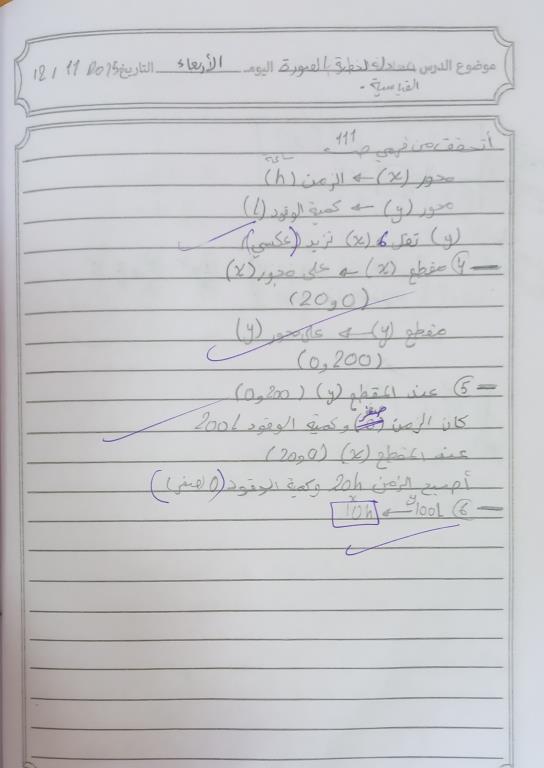 موضوع الدرس معادلة الخطية بالصورة اليوم الأربعاء التاريخ 12 / 11 / 2025
القياسية.
أتحقق من فهمي ص 111
محور (x) ← الزمن (h) ساعة
محور (y) ← كمية الوقود (l)
(y) تقل و (x) تزيد (عكسي)
4 مقطع (x) ← على محور (x)
(20 و 0)
مقطع (y) ← على محور (y)
(0 و 200)
5 عند المقطع (y) (0 و 200)
كان الزمن صفر وكمية الوقود 200 l
عند المقطع (x) (20 و 0)
أصبح الزمن 20h وكمية الوقود (0 صفر)
6 100L y ← 10h x